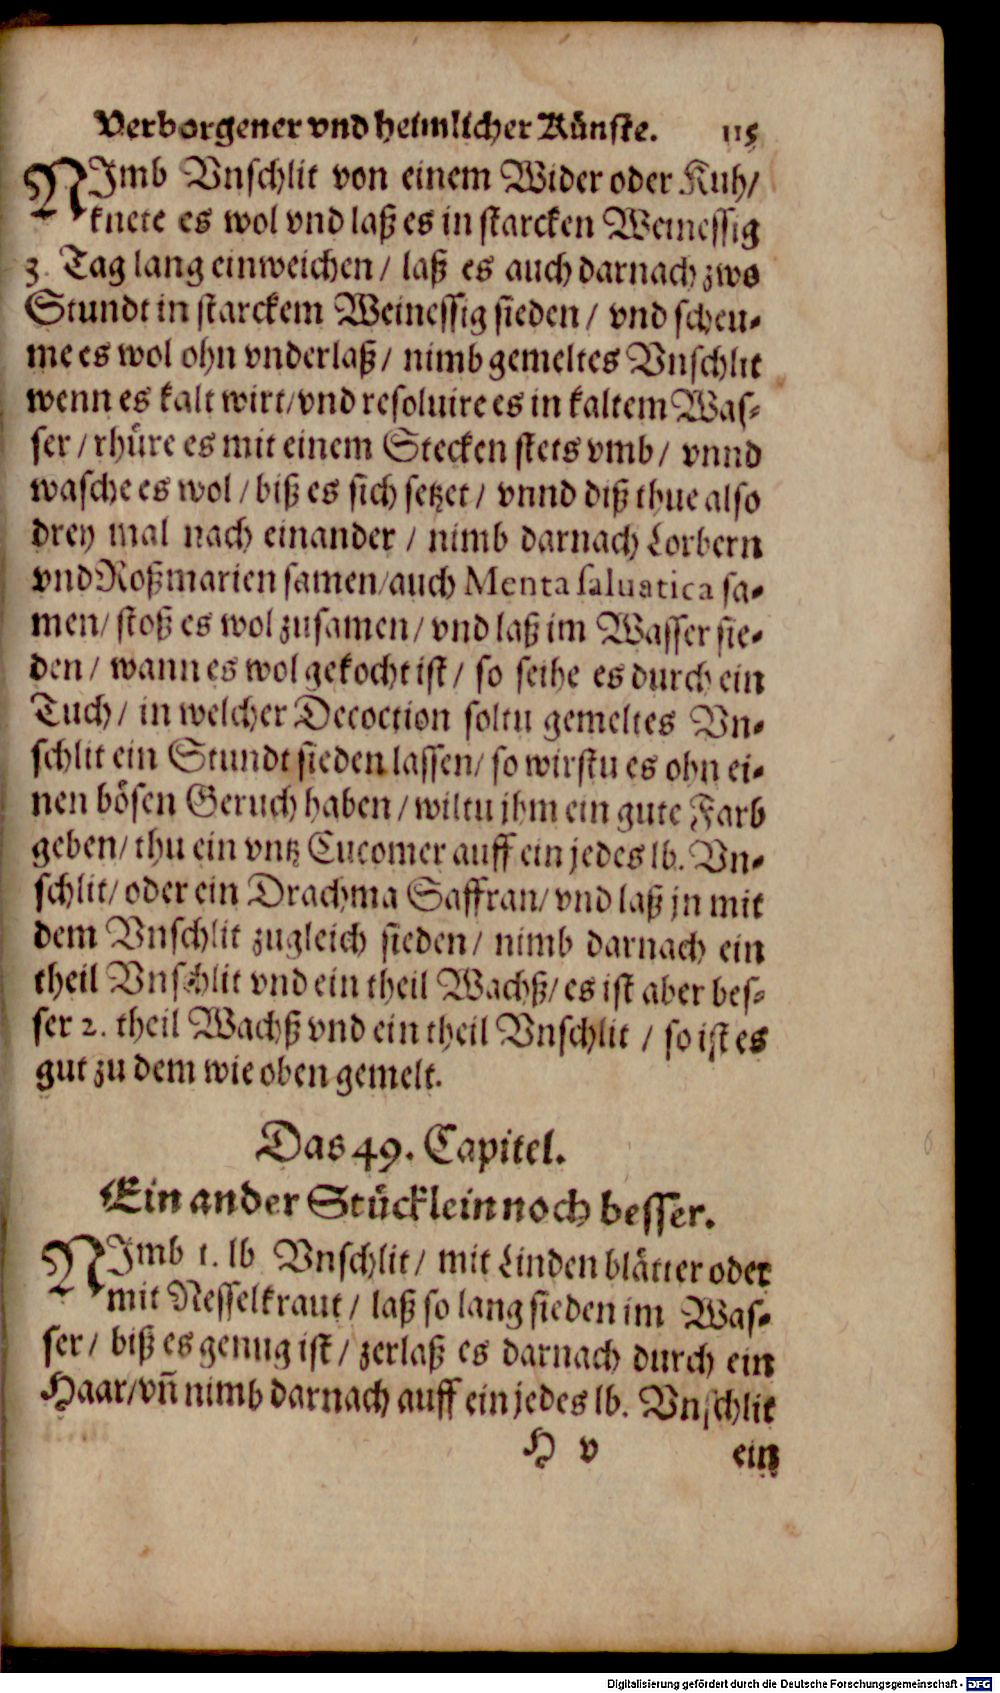 Verborgener vnd heimlicher Künste. 115
NImb Vnschlit von einem Wider oder Kuh/
knete es wol vnd laß es in starcken Weinessig
3. Tag lang einweichen / laß es auch darnach zwo
Stundt in starckem Weinessig sieden / vnd scheu-
me es wol ohn vnderlaß / nimb gemeltes Vnschlit
wenn es kalt wirt/vnd resoluire es in kaltem Was-
ser / rhüre es mit einem Stecken stets vmb / vnnd
wasche es wol / biß es sich setzet / vnnd diß thue also
drey mal nach einander / nimb darnach Lorbern
vnd Roßmarien samen/auch Menta saluatica sa-
men/ stoß es wol zusamen/ vnd laß im Wasser sie-
den / wann es wol gekocht ist / so seihe es durch ein
Tuch / in welcher Decoction soltu gemeltes Vn-
schlit ein Stundt sieden lassen/ so wirstu es ohn ei-
nen bösen Geruch haben / wiltu jhm ein gute Farb
geben/ thu ein vntz Cucomer auff ein jedes lb. Vn-
schlit/ oder ein Drachma Saffran/ vnd laß jn mit
dem Vnschlit zugleich sieden / nimb darnach ein
theil Vnschlit vnd ein theil Wachß/ es ist aber bes-
ser 2. theil Wachß vnd ein theil Vnschlit / so ist es
gut zu dem wie oben gemelt.
Das 49. Capitel.
Ein ander Stücklein noch besser.
NImb 1. lb Vnschlit / mit Linden blätter oder
mit Nesselkraut / laß so lang sieden im Was-
ser / biß es genug ist / zerlaß es darnach durch ein
Haar/vñ nimb darnach auff ein jedes lb. Vnschlit
H v ein
Digitalisierung gefördert durch die Deutsche Forschungsgemeinschaft - DFG